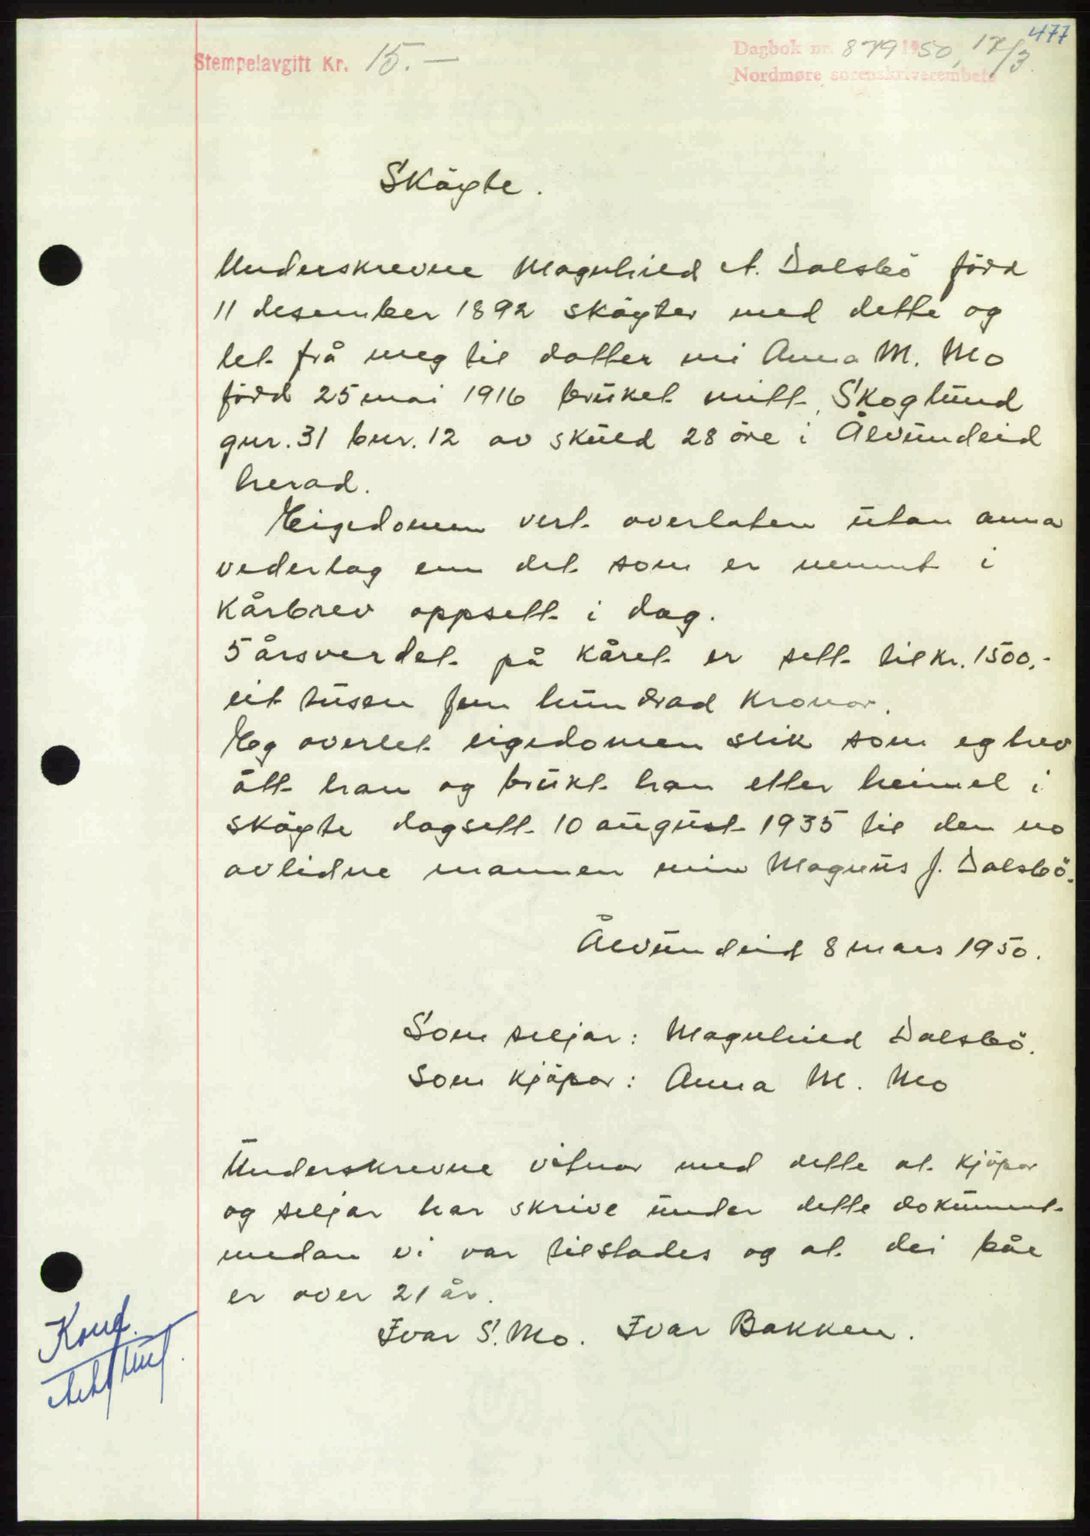 477
Stempelavgift Kr. 15.-
Dagbok nr. 879 1950, 17/3
Nordmøre sorenskriverembete
Skøyte.
Underskrevne Magnhild A. Dalsbö född
11 desember 1892 skøyter med dette og
let frå meg til dotter mi Anna M. Mo
född 25 mai 1916 bruket mitt Skoglund
gnr. 31 bnr. 12 av skuld 28 öre i Ålvundeid
herad.
Eigedomen vert overlaten utan anna
vederlag enn det som er nemnt i
kårbrev oppsett i dag.
5 årsverdet på kåret er sett til kr. 1500,-
eit tusen fem hundrad kronor.
Eg overlet eigedomen slik som eg hev
ått han og brukt han etter heimel i
skøyte dagsett 10 august 1935 til den no
avlidne mannen min Magnus J. Dalsbö.
Ålvundeid 8 mars 1950.
Som seljar: Magnhild Dalsbö.
Som kjöpar: Anna M. Mo
Underskrevne vitnar med dette at kjöpar
og seljar har skrive under dette dokument
medan vi var tilstades og at dei båe
er over 21 år.
Ivar S. Mo. Ivar Bakken.
Konf.